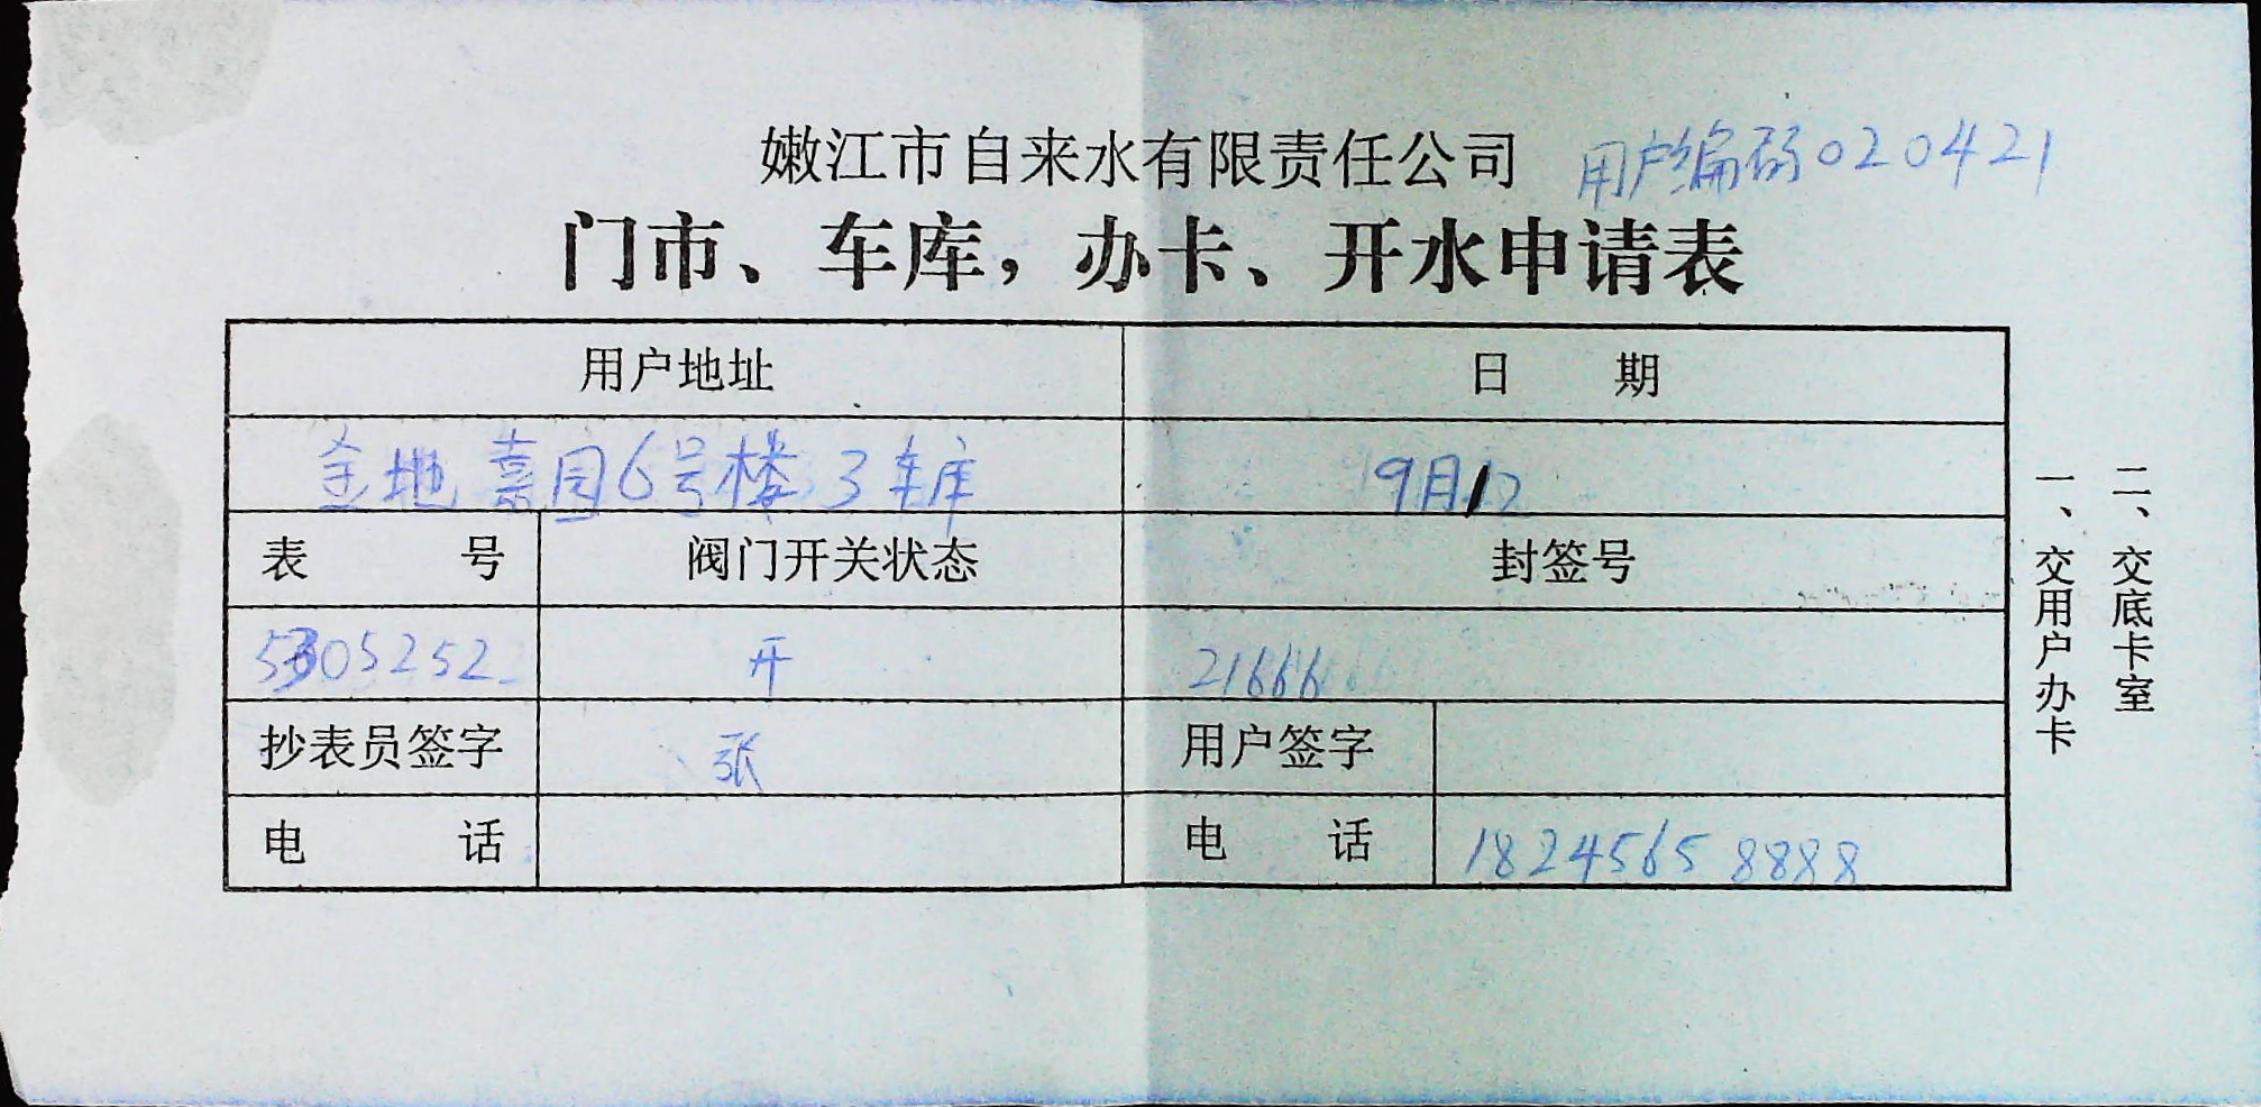 嫩江市自来水有限责任公司 用户编码020421
门市、车库，办卡、开水申请表
用户地址 日 期
金地嘉园6号楼3车库 9月12
表 号 阀门开关状态 封签号
5305252 开 21666
抄表员签字 张 用户签字
电 话 电 话 18245658888
一、交用户办卡
二、交底卡室